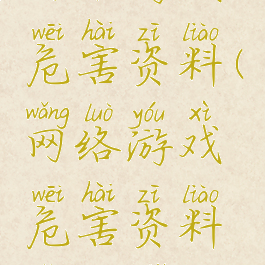 wēi hài zī liào
危害资料(
wǎng luò yóu xì
网络游戏
wēi hài zī liào
危害资料